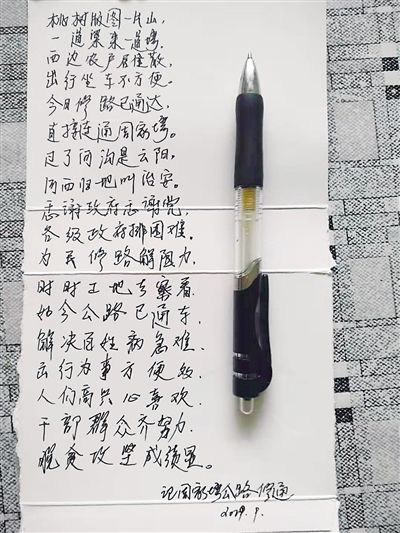 桃树版图一片山,
一道梁来一道塆.
两边农户居住散,
出行坐车不方便.
今日修路已通达,
直接连通周家塆。
过了河沟是云阳,
河西归地叫治安.
感谢政府感谢党,
各级政府排困难.
为民修路解阻力.
时时工地去察看.
如今公路已通车.
解决百姓病急难.
出行办事方便起.
人们高兴心喜欢.
干部群众齐努力.
脱贫攻坚成绩显。
记周家塆公路修通
2019.9.